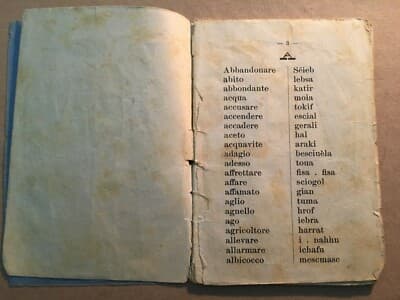 — 3 —
A
Abbandonare Sëieb
abito lebsa
abbondante katir
acqua moia
accusare tokif
accendere escial
accadere gerali
aceto hal
acquavite araki
adagio besciuêla
adesso toua
affrettare fisa . fisa
affare sciogol
affamato gian
aglio tuma
agnello hrof
ago iebra
agricoltore harrat
allevare i . nahhn
allarmare ichafu
albicocco mescmasc